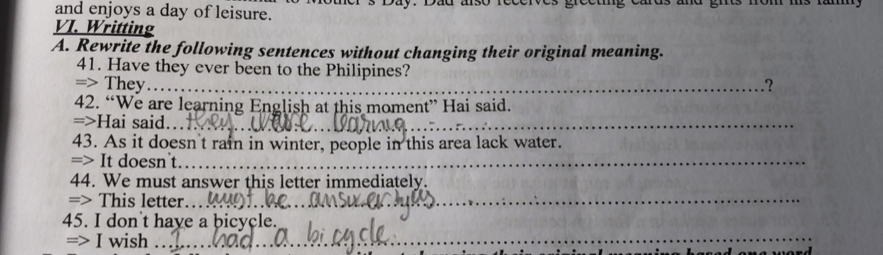 and enjoys a day of leisure.
VI. Writting
A. Rewrite the following sentences without changing their original meaning.
41. Have they ever been to the Philipines?
=> They...............................................................?
42. “We are learning English at this moment” Hai said.
=>Hai said...they... ...larnig.......................................
43. As it doesn't rain in winter, people in this area lack water.
=> It doesn't...............................................................
44. We must answer this letter immediately.
=> This letter...must..be...answer.......................................
45. I don't have a bicycle.
=> I wish ...I....had..a..bi cycle.......................................